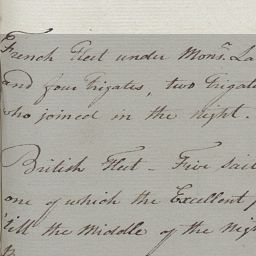 French Fleet under Monsr. La
and four Frigates, two Frigate
who joined in the night.
British Fleet - Five Sail
one of which the Excellent
till the Middle of the Nig